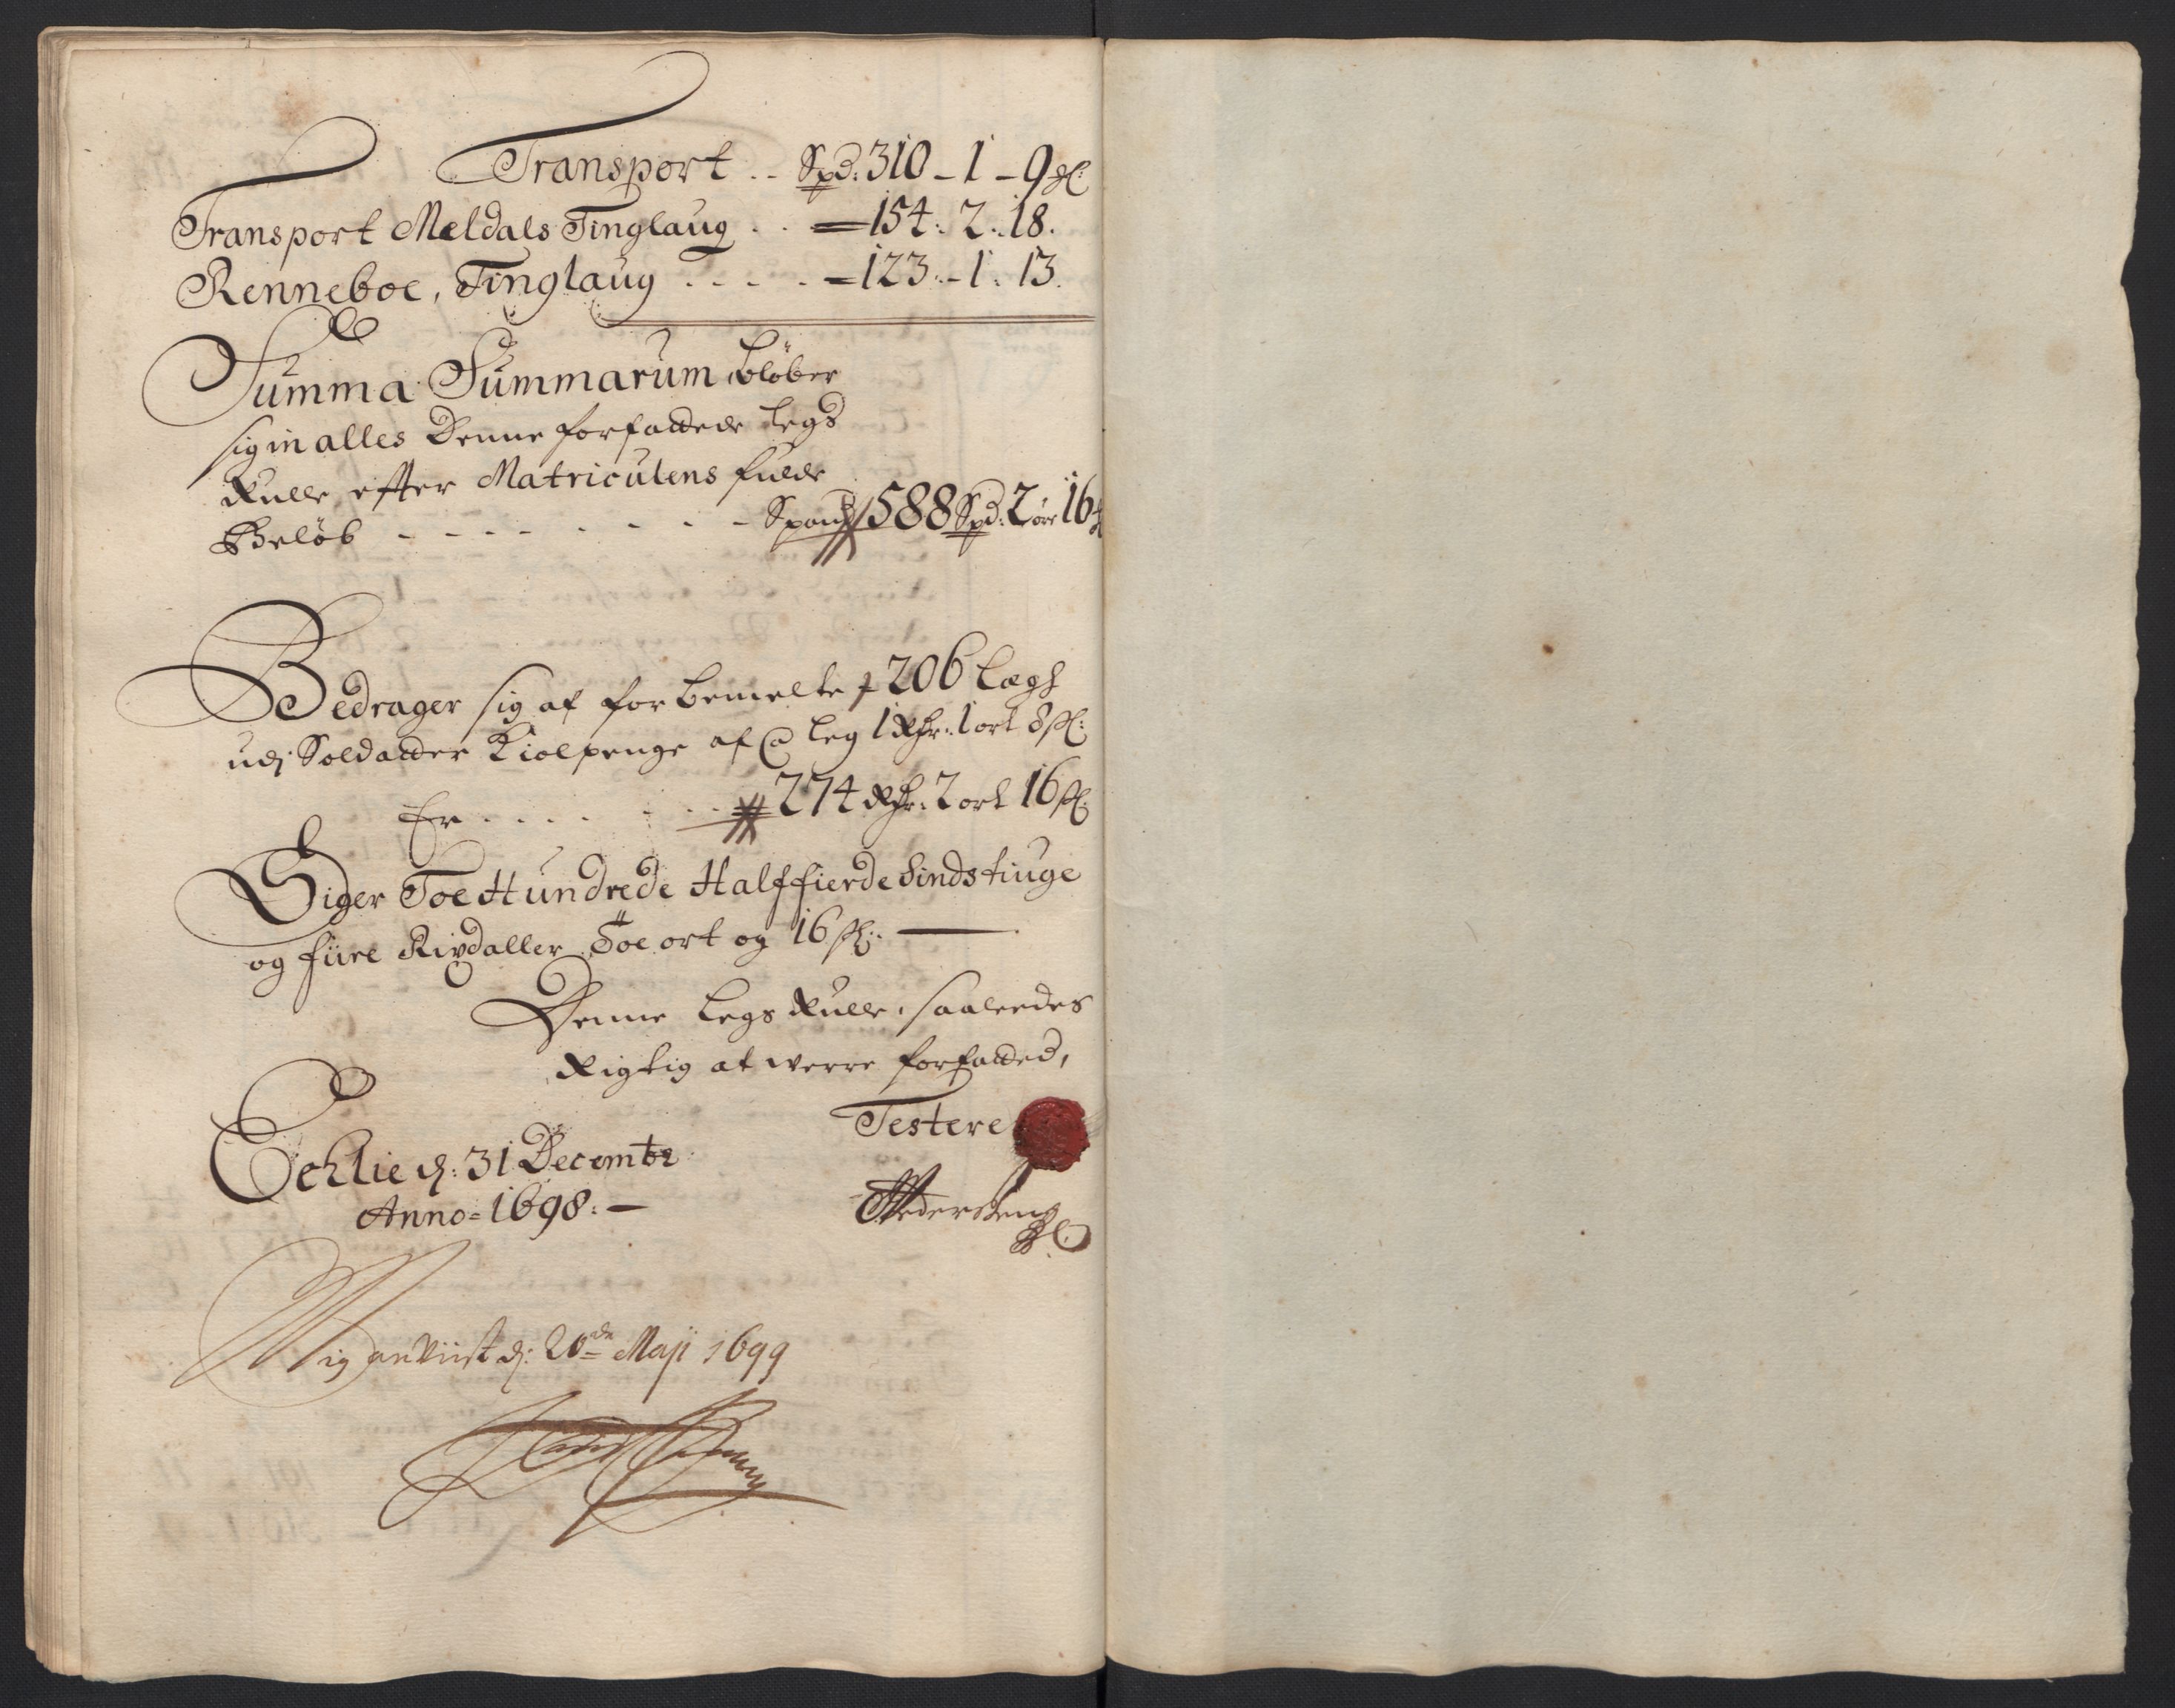 Transport .. Spd: 310 - 1 - 9 ꝸl:
Transport Meldals Tinglaug . . = 154: 2: 18.
Renneboe, Tinglaug . . . . = 123: - 1: 13.
Summa Summarum, beløber
sig in alles Denne forfattede legs
Rulle, efter Matriculens fulde
Beløb - - - - - - - - Spand 588 Spd: 2 øre 16
Bedrager sig af for bemelte 206 Lægh
udj Soldatter Kiolpenge af leg 1 Rdr: 1 ort 8 sk:
Er . . . . . . . 274 Rdr: 2 ort 16 sk:
Siger Toe Hundrede Halffierde Sinds tiuge
og fiire Rixdaller Toe ort og 16 sk: —
Denne Legs Rulle, saaleedes
Rigtig at werre forfatted,
Testere
Echlie d: 31 Decembr
Anno = 1698: —
Pedersen
Mig anviist d: 20de Maji 1699